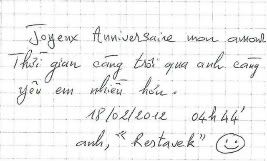 Joyeux Anniversaire mon amour
Thời gian càng trôi qua anh càng
yêu em nhiều hơn.
18/02/2012 04h44'
anh, "Restavek"